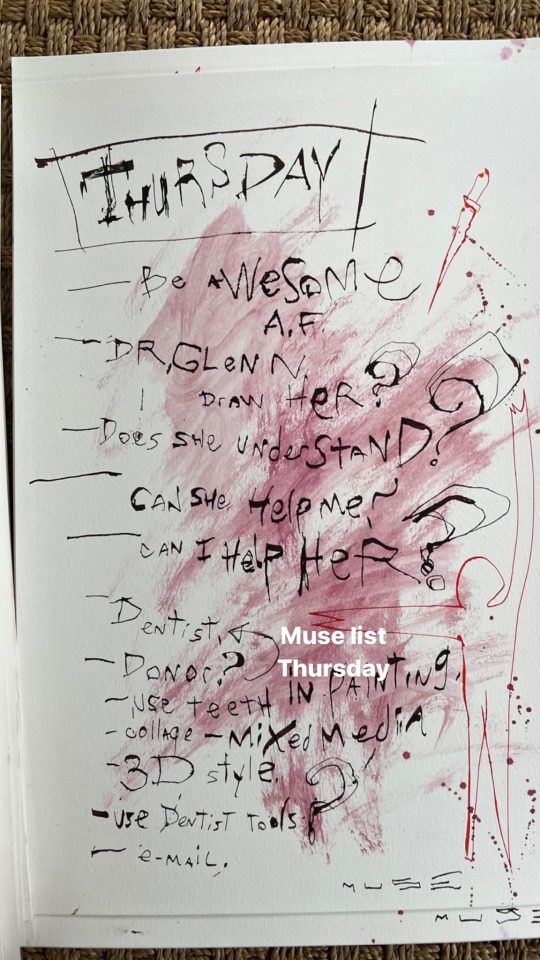 THURSDAY
— Be AWESOME
A.F.
— DR, GLENN,
I DRAW HER?
— Does SHE UNDERSTAND?
— CAN SHE Help Me?
— CAN I Help HeR?
— Dentist,
— Donor?
- USE TEETH IN PAINTING,
- collage - MiXed MeDIA
- 3D style.
- USE DENTIST TOOLS?
- e-MAIL.
MUSE
MUSE
Muse list
Thursday